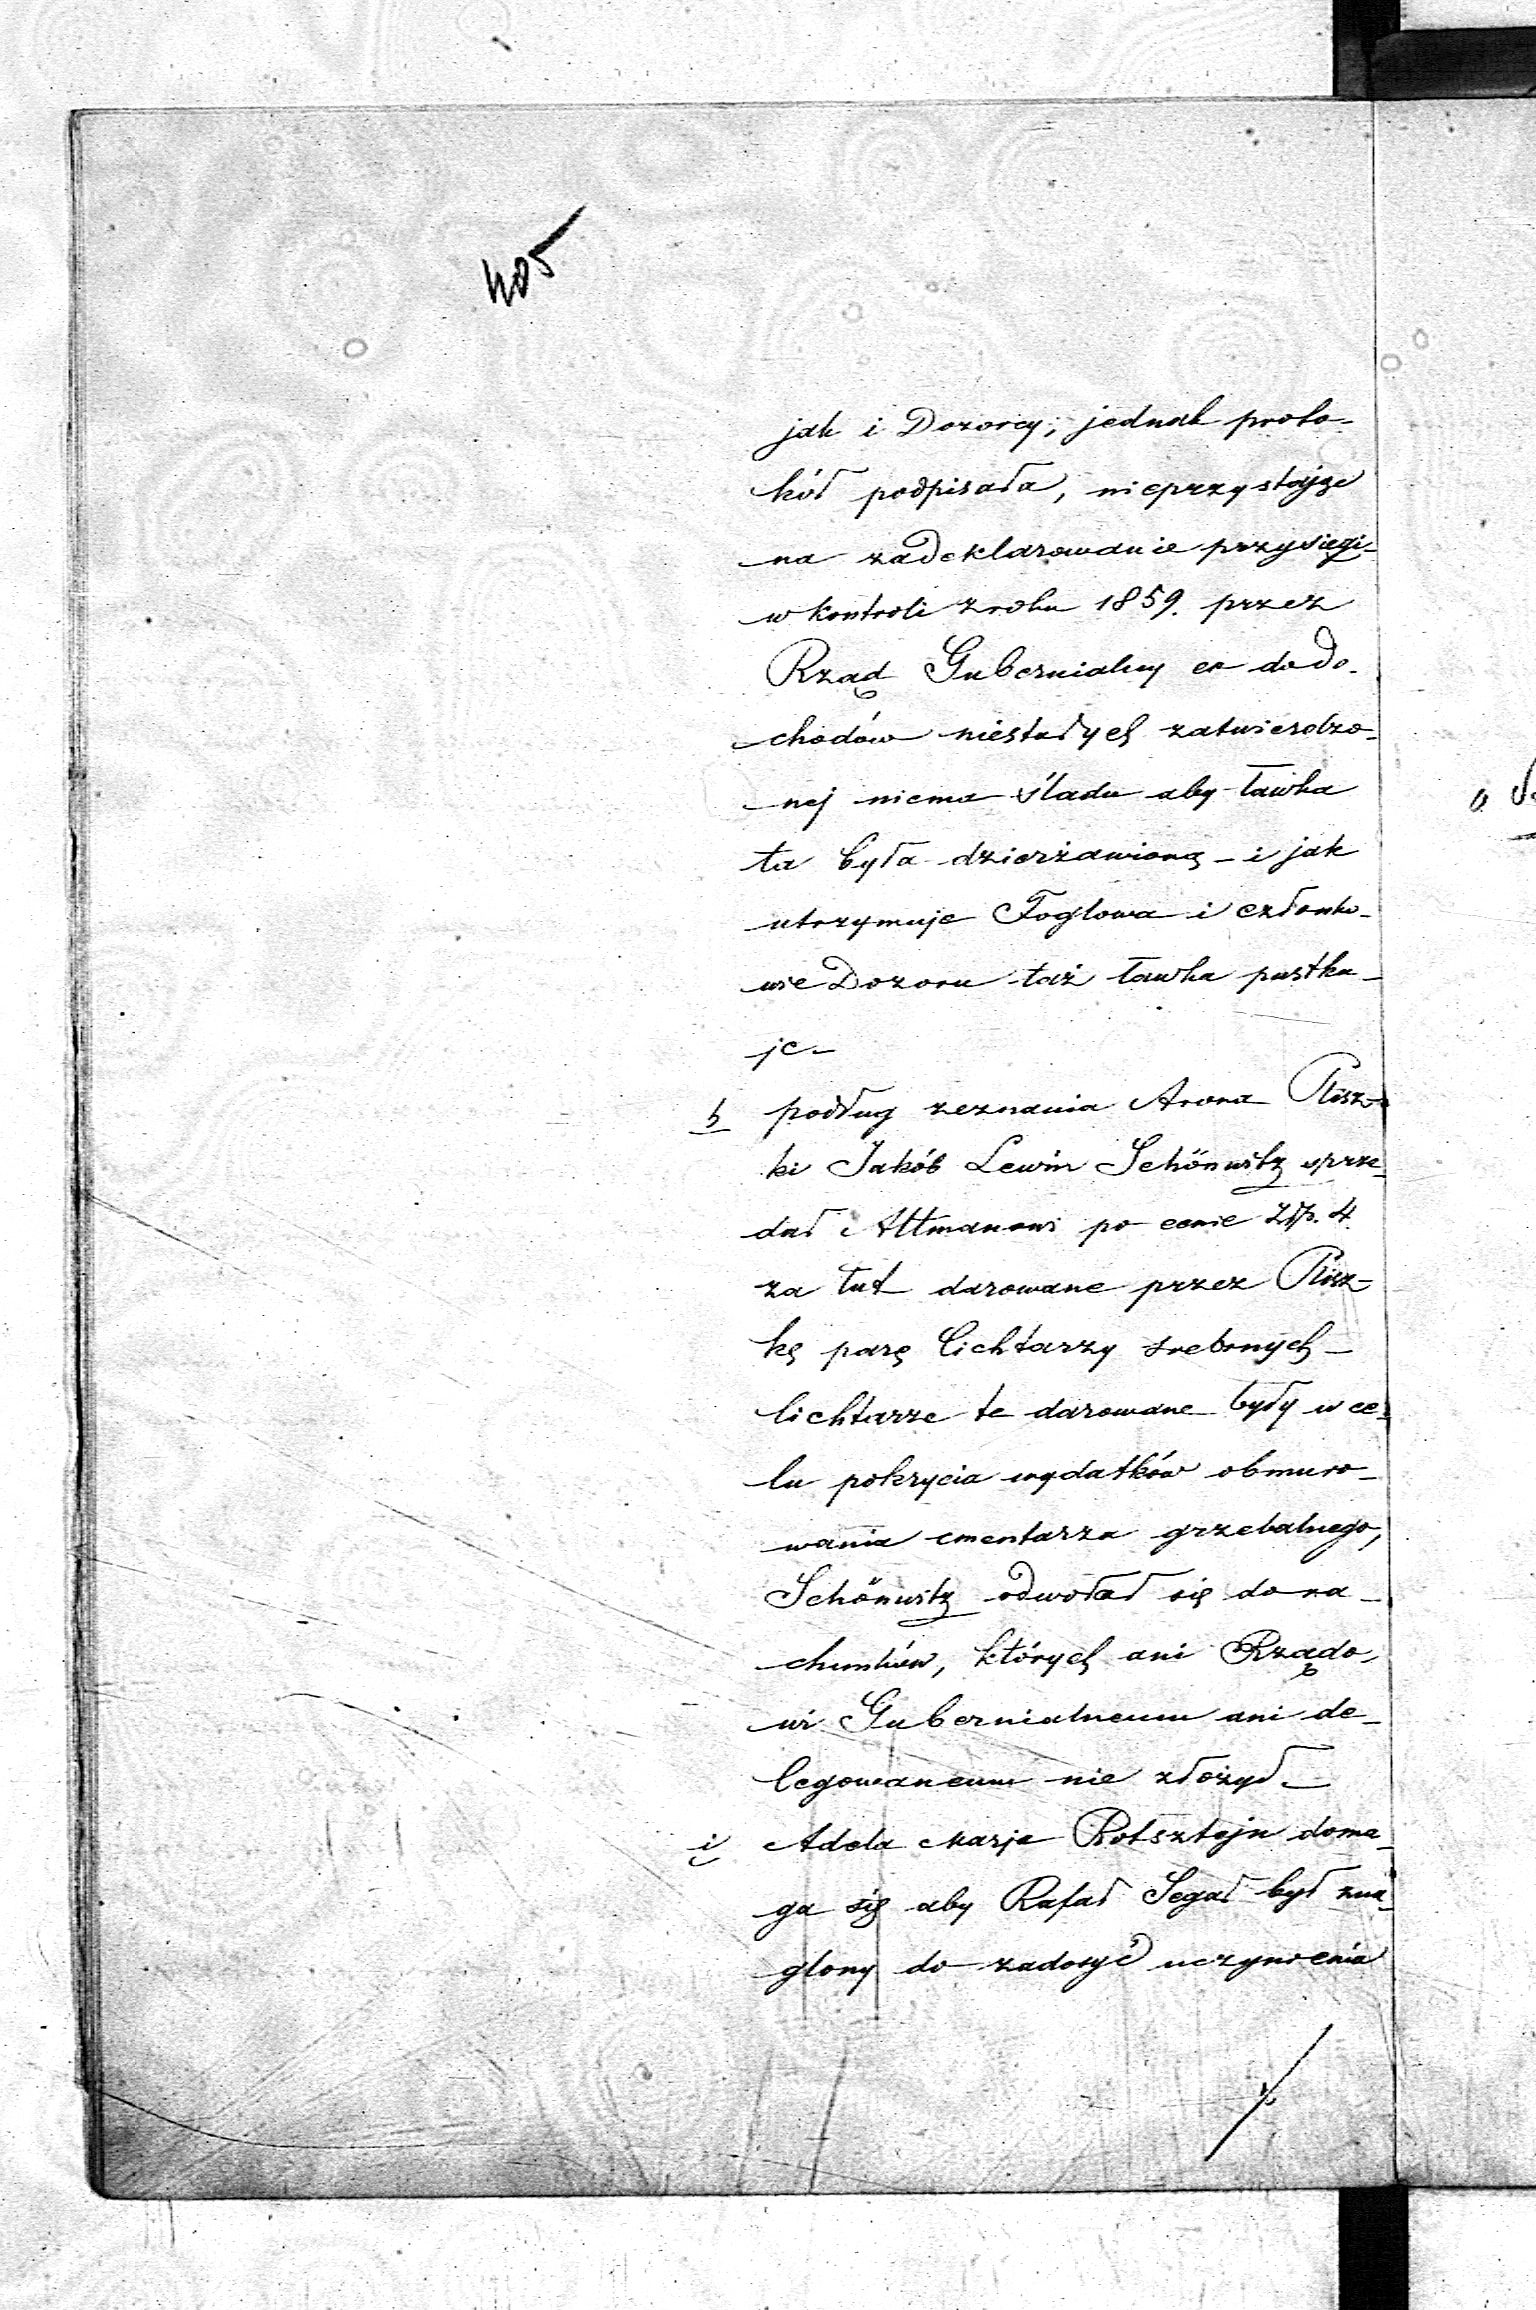 405
jak i Dozorcy, jednak proto-
kół podpisała, nieprzystając
na zadeklarowanie przysięgi-
w kontroli z roku 1859. przez
Rząd Gubernialny co do do-
chodów niestałych zatwierdzo-
nej niema śladu aby ławka
ta była dzierżawioną - i jak
utrzymuje Foglowa i członko-
wie Dozoru taż ławka pustku-
je-
h podług zeznania Arona Plisz-
ki Jakób Lewin Schönwitz sprze-
dał Altmanowi po cenie Złp. 4.
za łut darowane przez Plisz-
kę parę lichtarzy srebrnych-
lichtarze te darowane były w ce-
lu pokrycia wydatków obmuro-
wania cmentarza grzebalnego,
Schönwitz odwołał się do ra-
chunków, których ani Rządo-
wi Gubernialnemu ani de-
legowanemu nie złożył-
i Adela Marja Rotsztejn doma-
ga się aby Rafał Segał był zna-
glony do zadosyć uczynienia